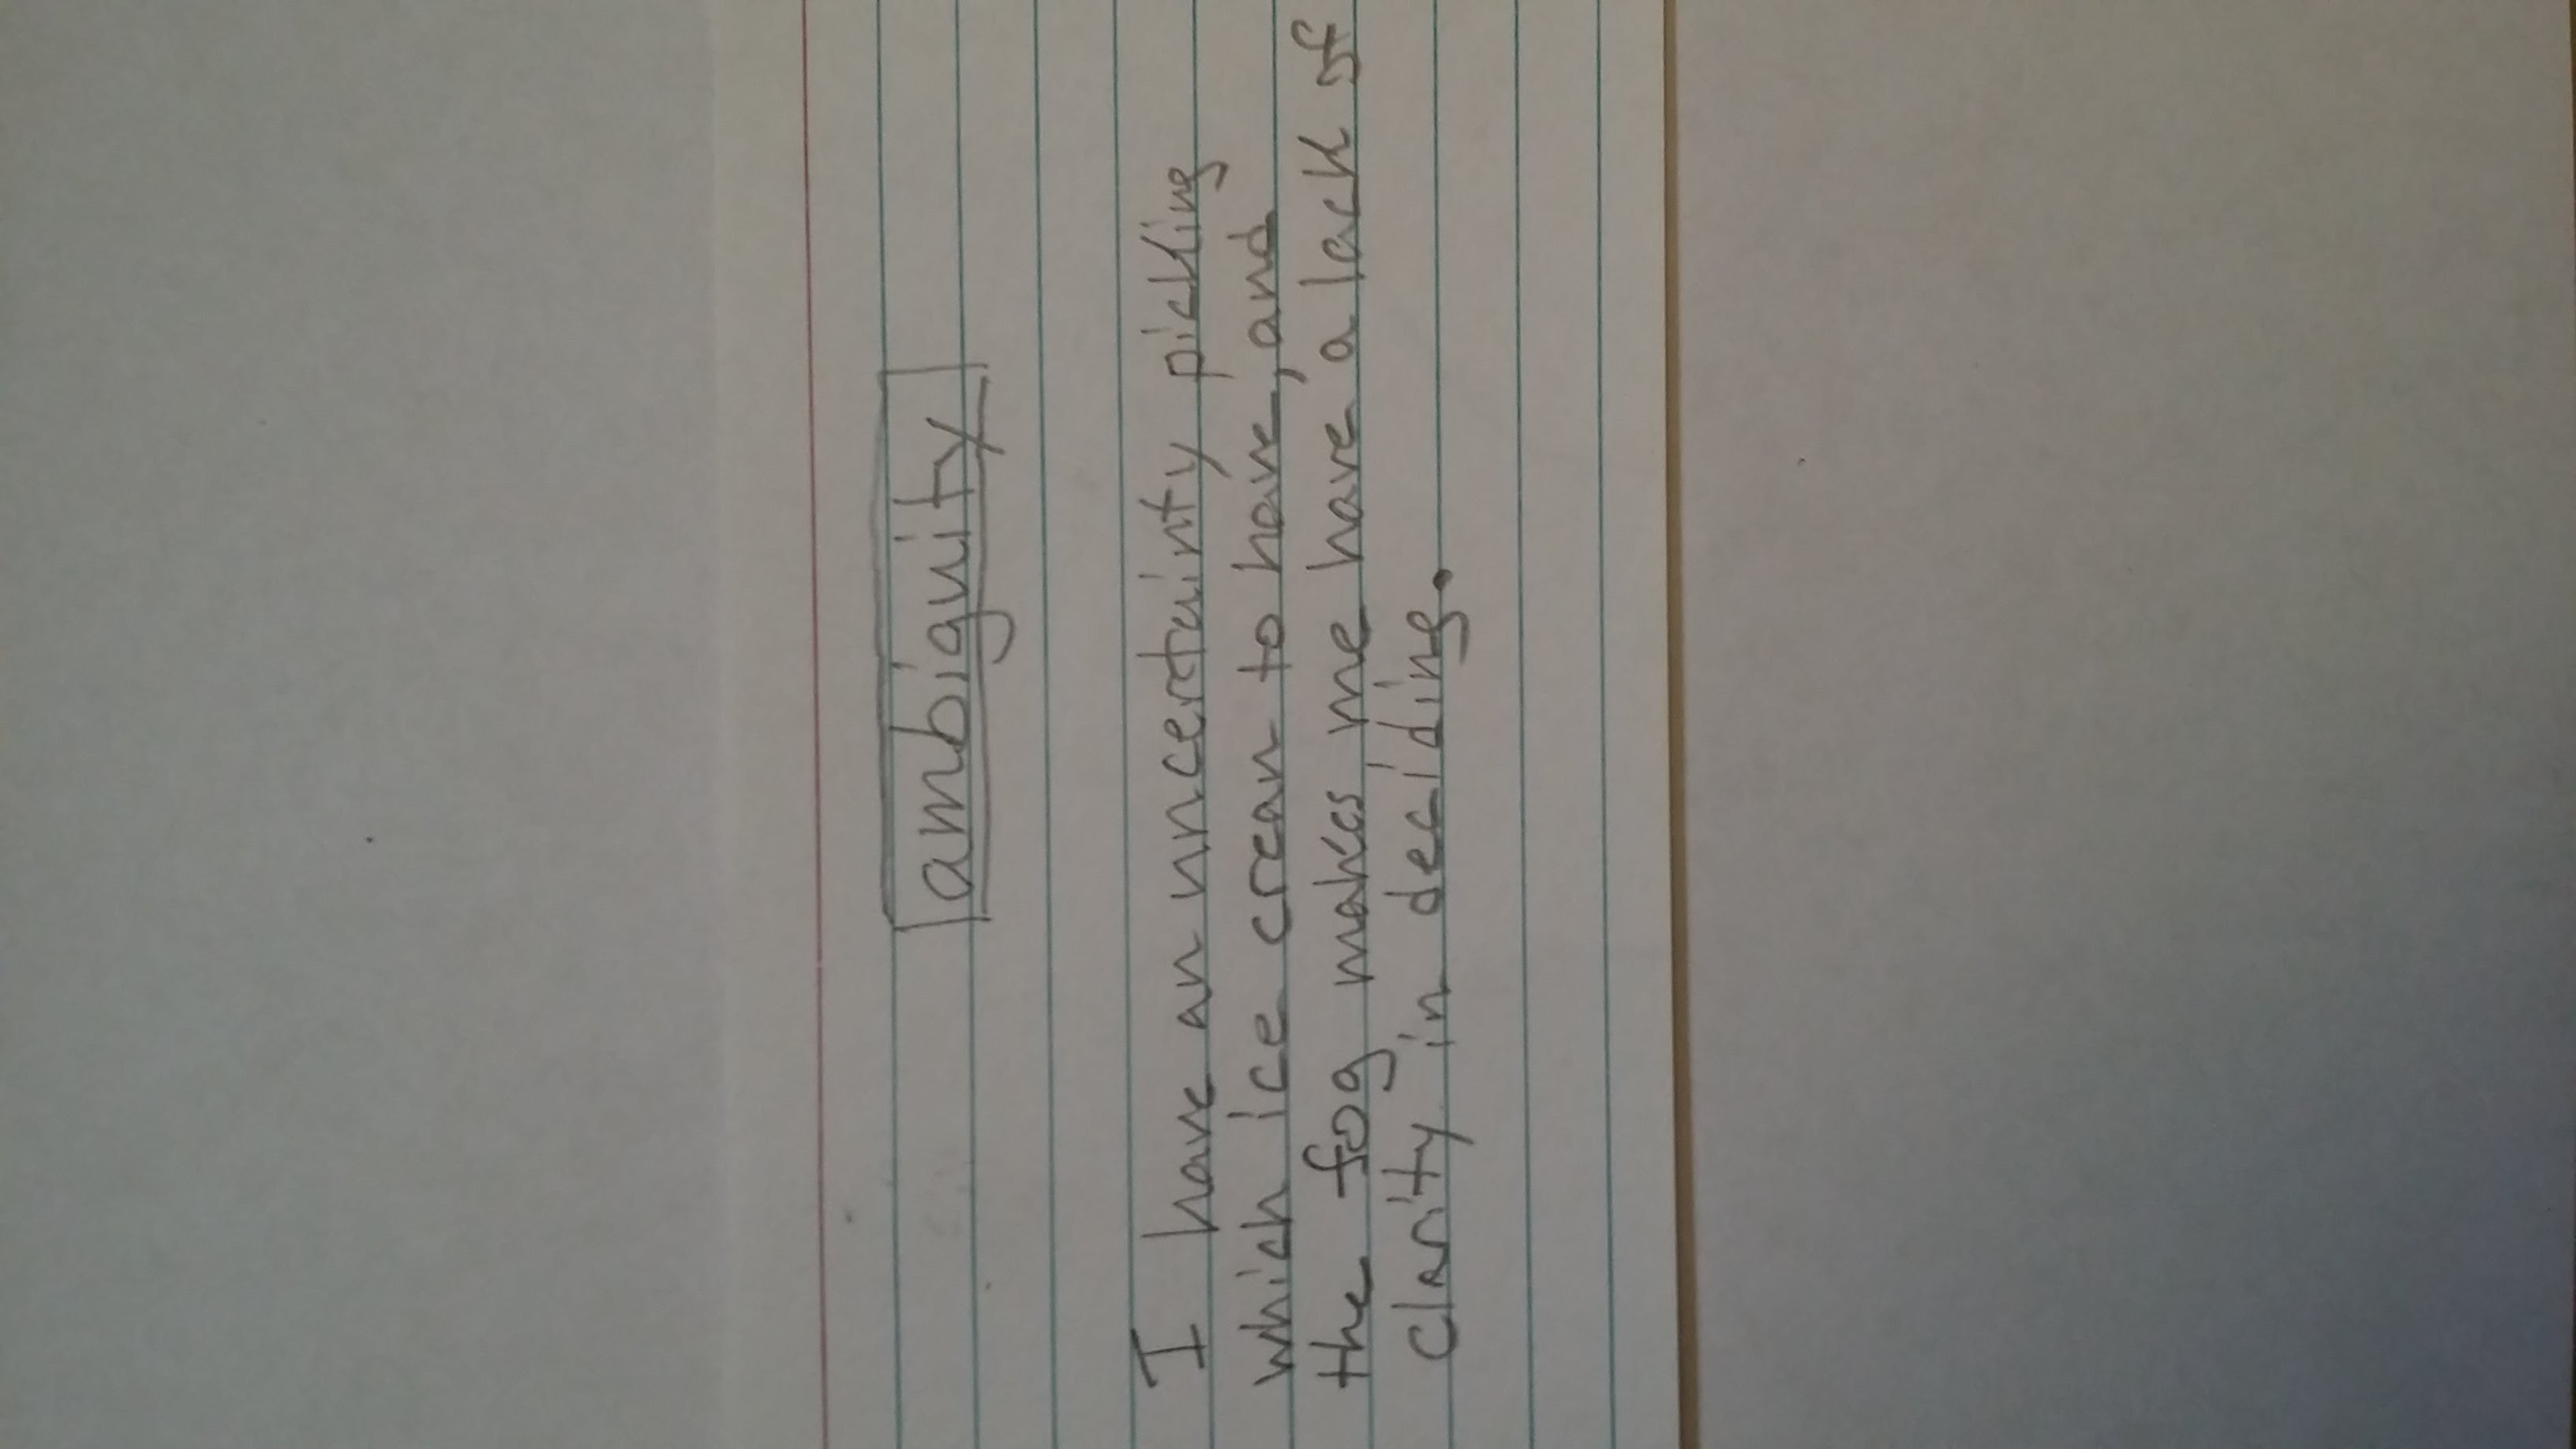 ambiguity
I have an uncertainty picking
which ice cream to have, and
the fog makes me have a lack of
clarity in deciding.